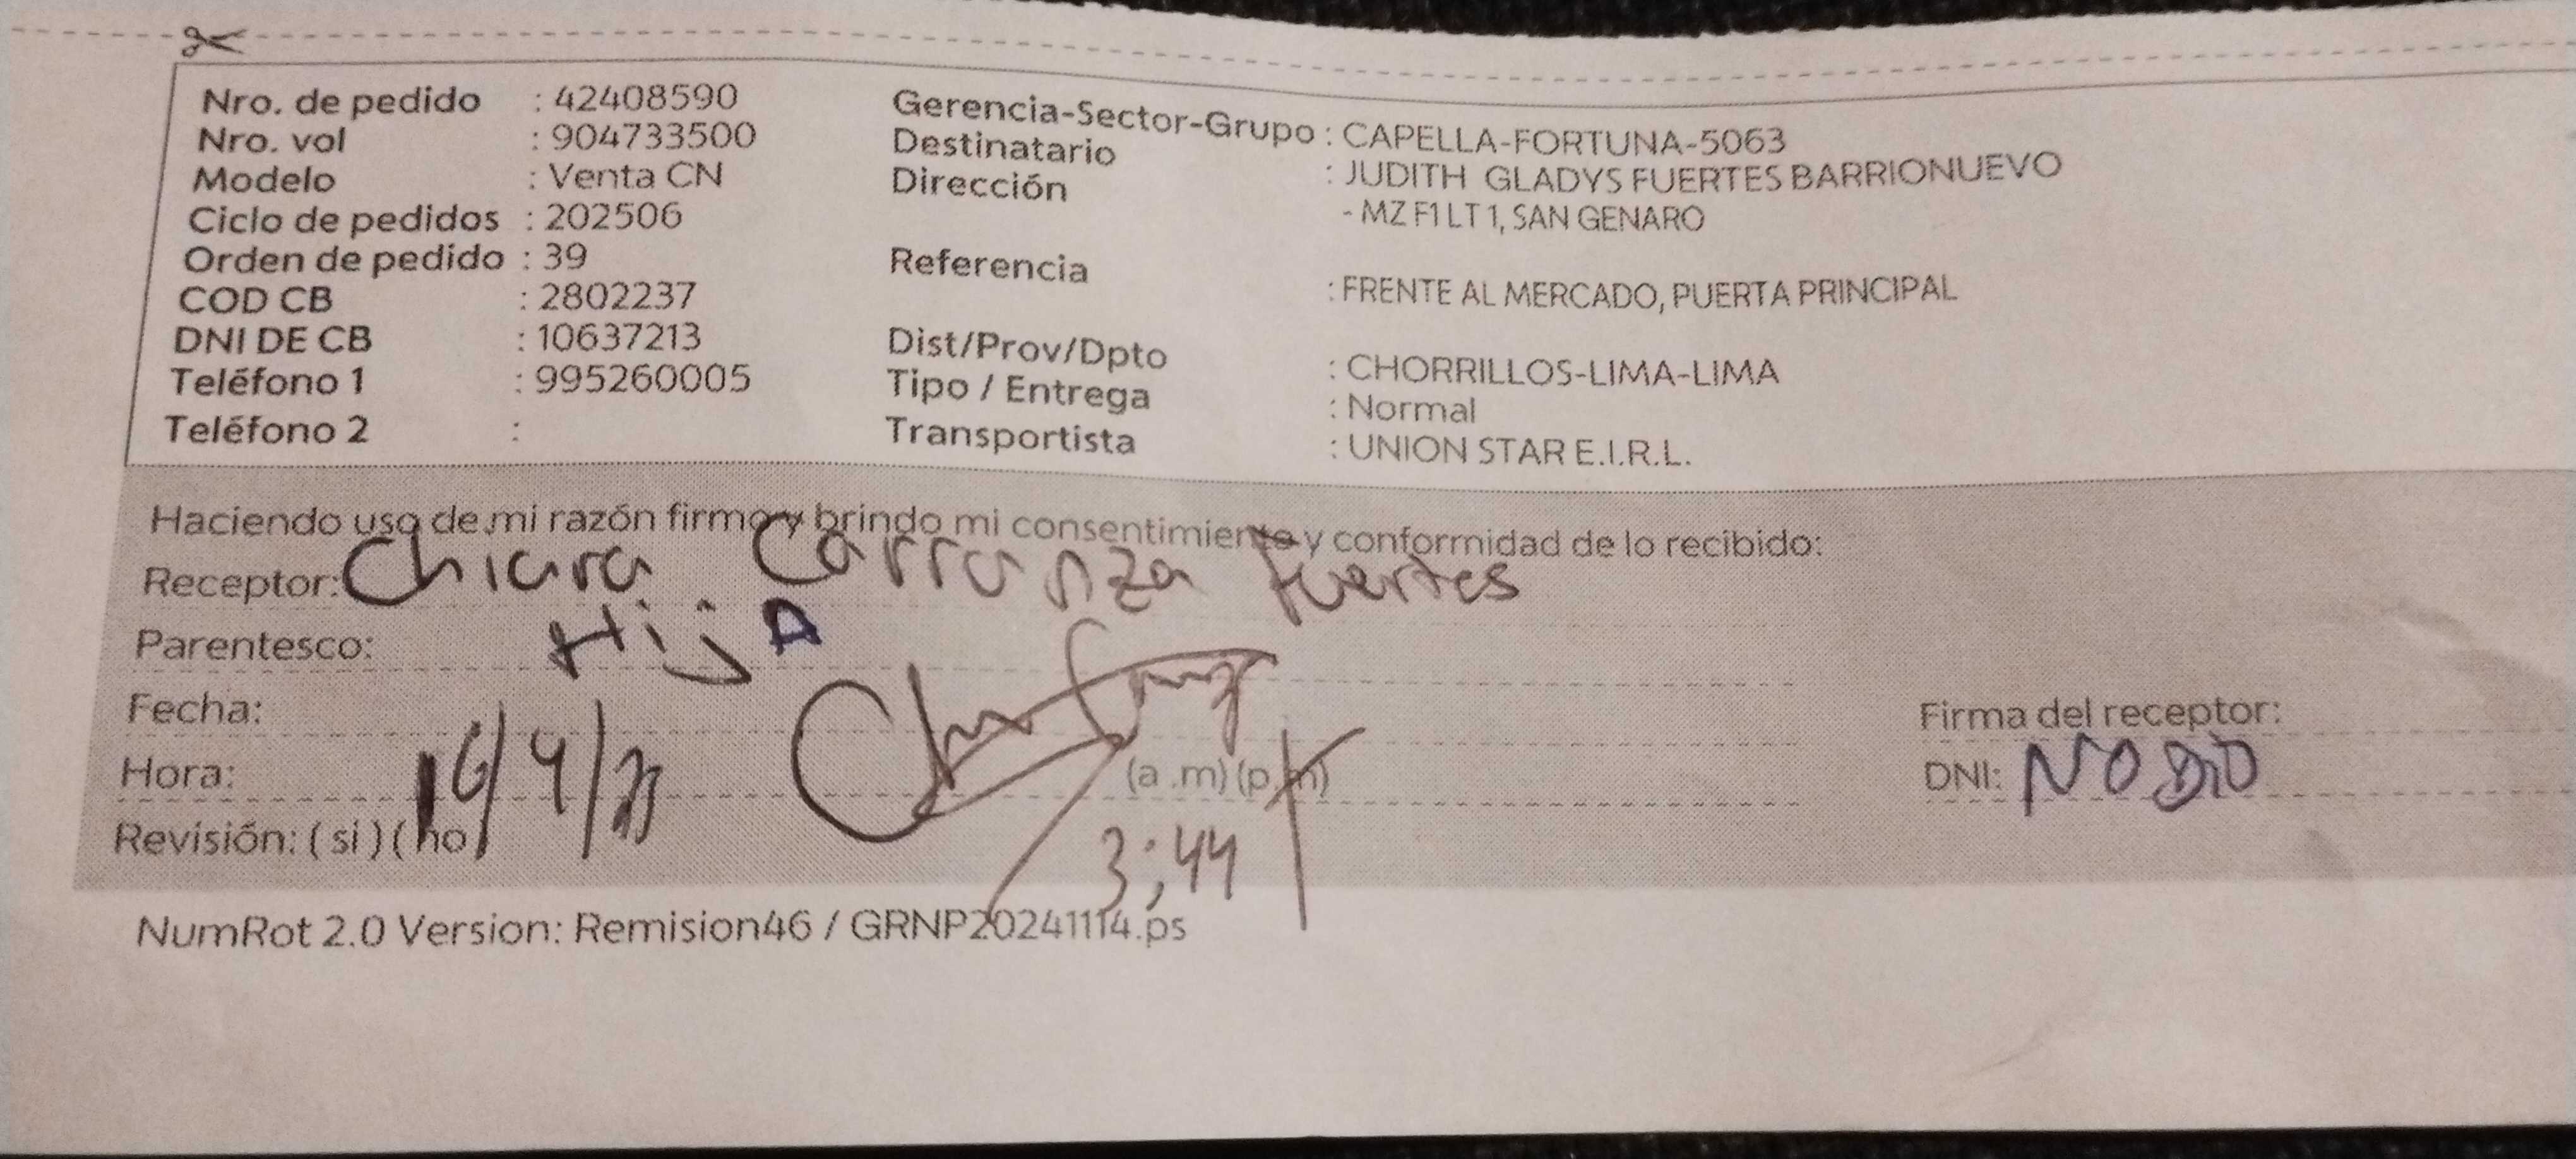 Nro. de pedido : 42408590
Nro. vol : 904733500
Modelo : Venta CN
Ciclo de pedidos : 202506
Orden de pedido : 39
COD CB : 2802237
DNI DE CB : 10637213
Teléfono 1 : 995260005
Teléfono 2 :
Gerencia-Sector-Grupo : CAPELLA-FORTUNA-5063
Destinatario : JUDITH GLADYS FUERTES BARRIONUEVO
Dirección - MZ F1 LT 1, SAN GENARO
Referencia : FRENTE AL MERCADO, PUERTA PRINCIPAL
Dist/Prov/Dpto : CHORRILLOS-LIMA-LIMA
Tipo / Entrega : Normal
Transportista : UNION STAR E.I.R.L.
Haciendo uso de mi razón firmo y brindo mi consentimiento y conformidad de lo recibido:
Receptor: Chiara Carranza Fuertes
Parentesco: HijA
Fecha: 16/4/25
Firma del receptor:
Hora: (a .m) (p.m)
3:44
DNI: NO DIO
Revisión: ( si ) ( no )
NumRot 2.0 Version: Remision46 / GRNP20241114.ps